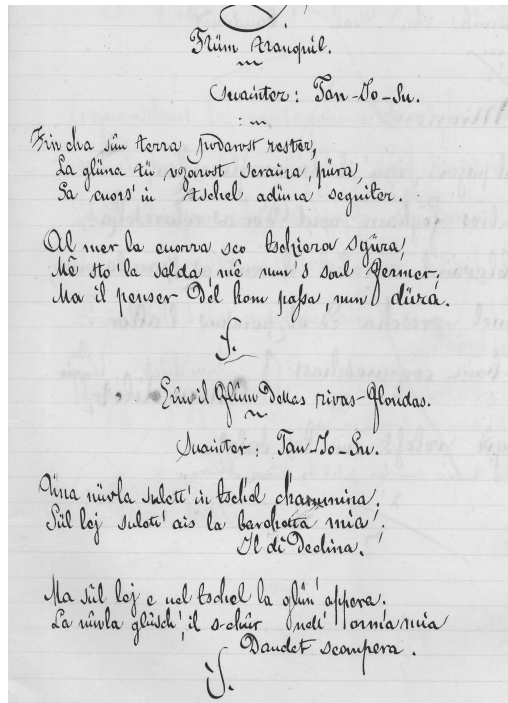 Flüm tranquil.
Suainter: Tan-Jo-Su.
Fin cha sün terra podarost rester,
La glüna tü vezarost seraina, püra,
Sa cuors' in tschel adüna seguiter.
Al mer la cuorra sco tschiera sgüra,
Mê sto'la salda, mê nun's soul fermer;
Ma il penser del hom passa, nun düra.
f.
Sün il flüm dellas rivas-floridas.
Suainter: Tan-Jo-Su.
Üna nüvla sulett' in tschel chammina;
Sül lej sulett' ais la barchetta mia;
Il di declina.
Ma sül lej e nel tschel la glün' appera;
La nüvla glüsch', il s-chür nell' orma mia
Dandet scumpera.
f.